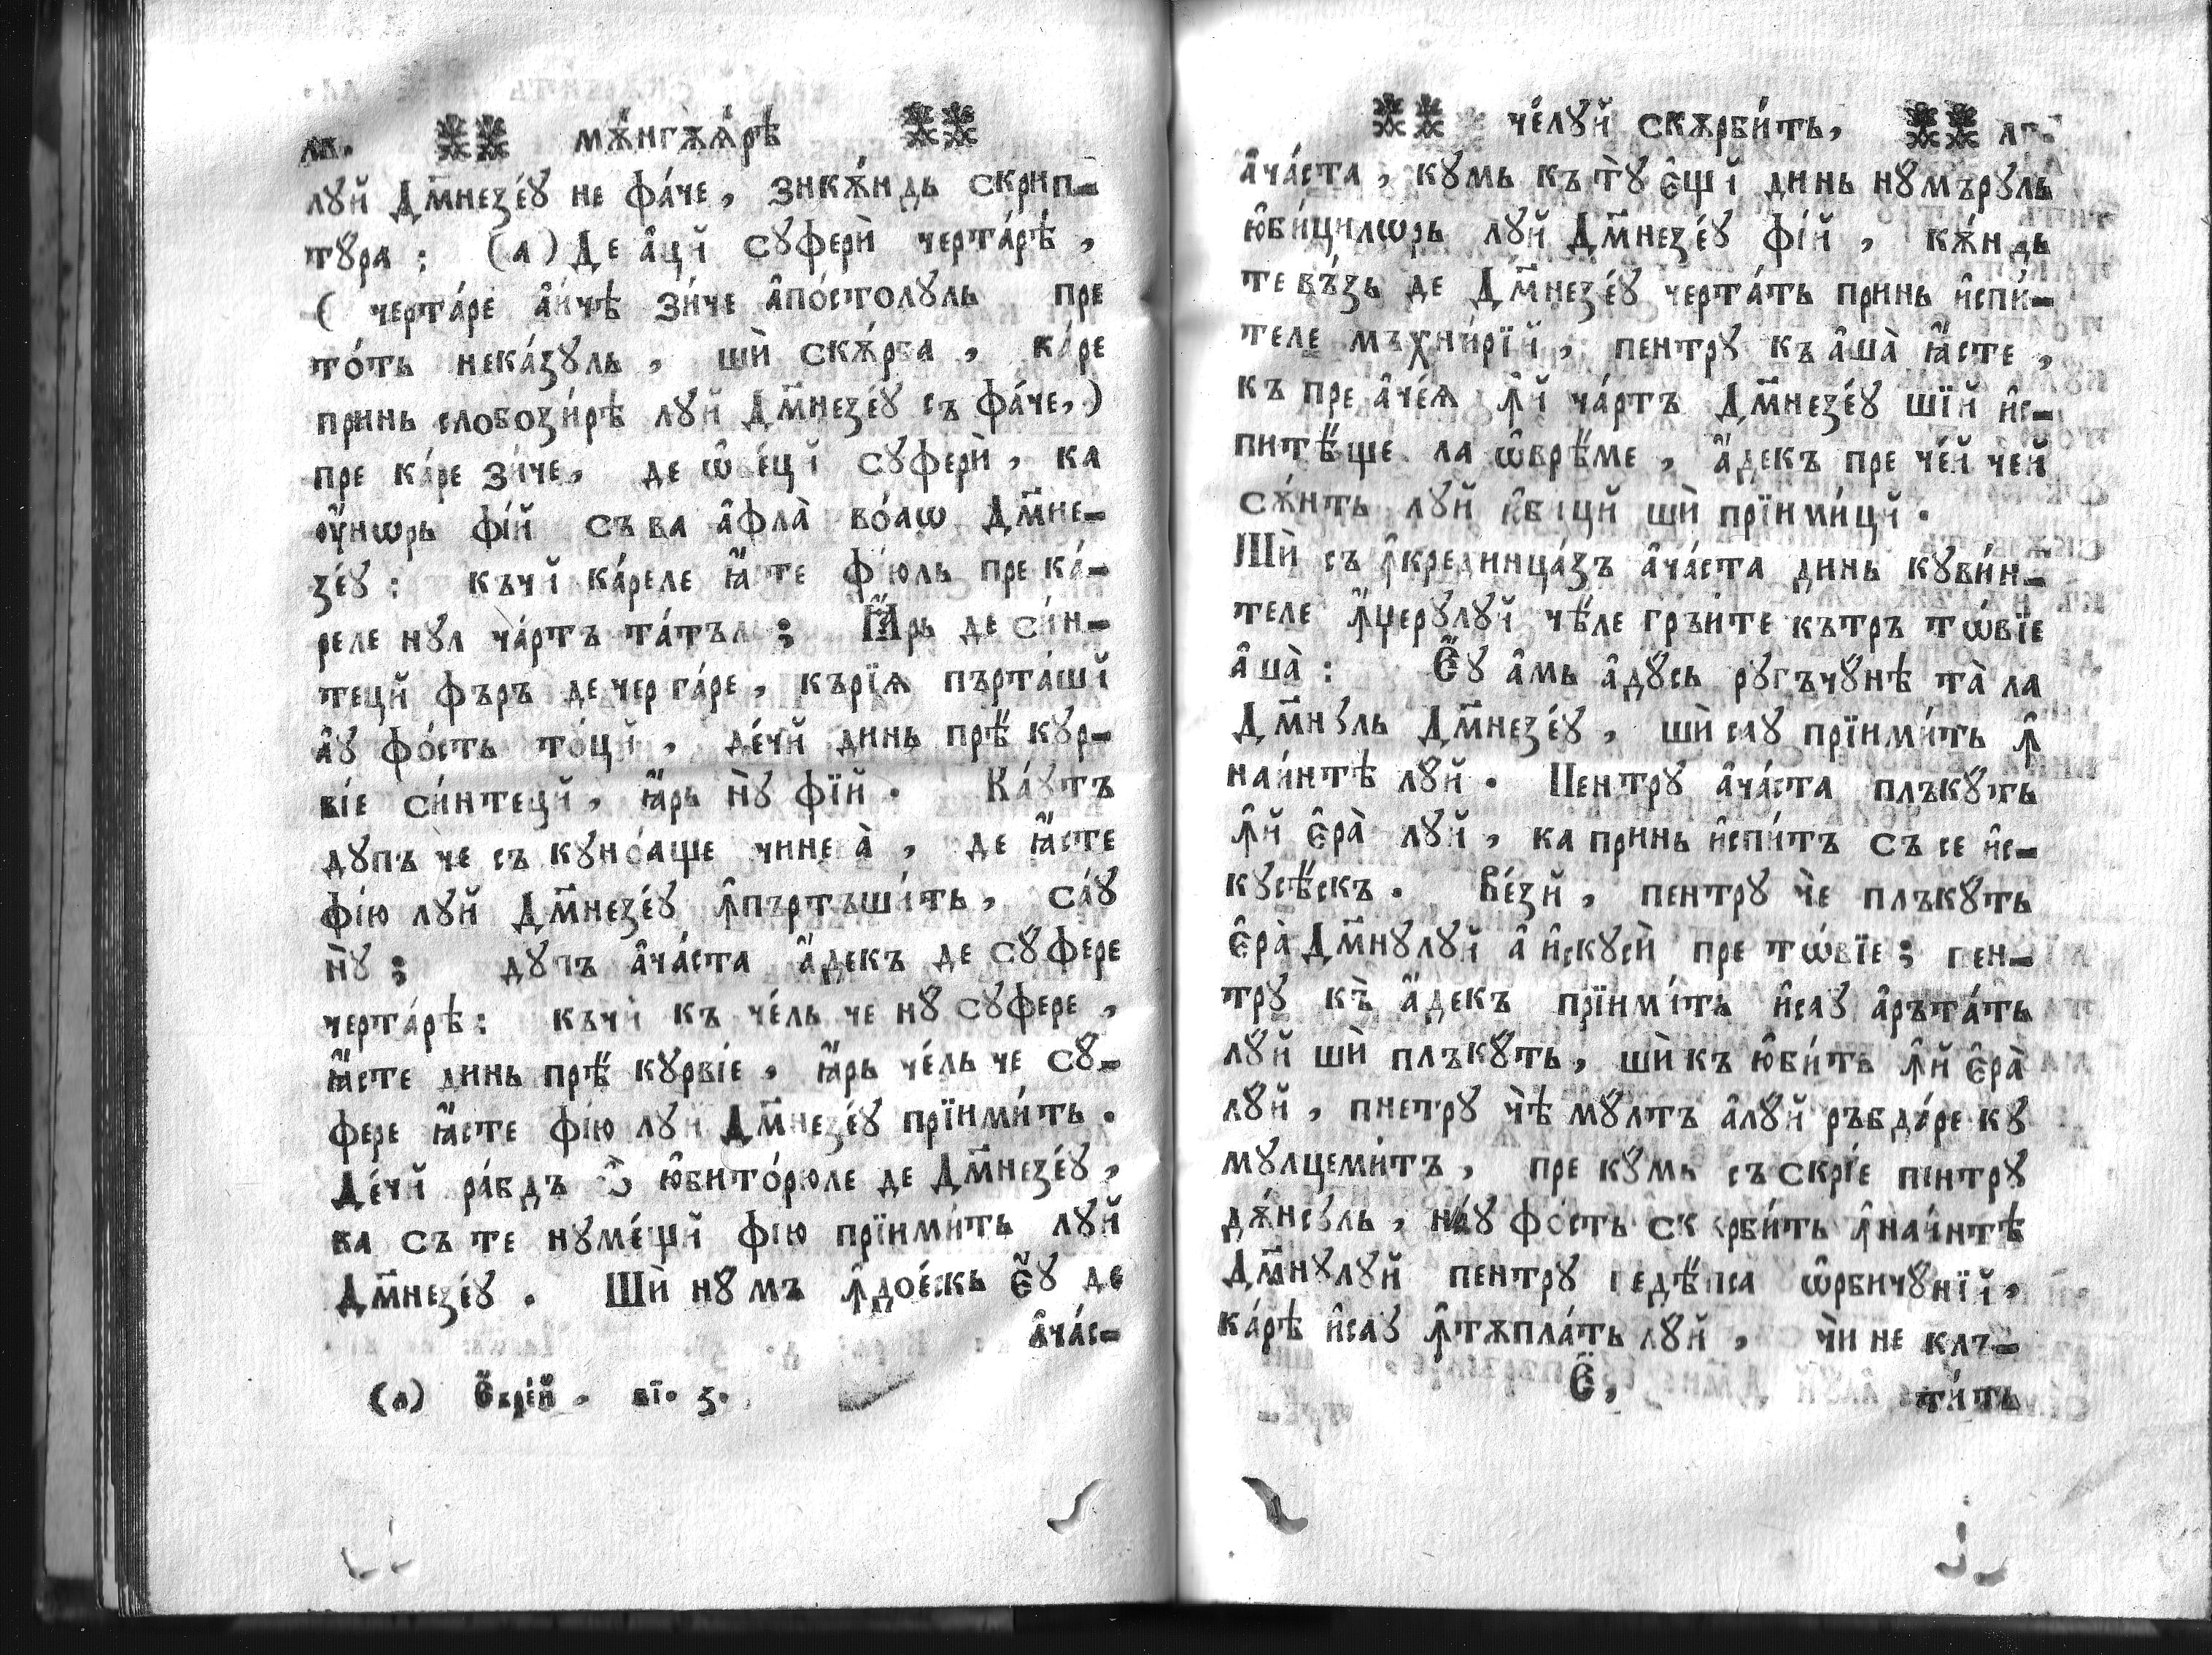 лв. мѫ́нгѫѧ́рѣ
лꙋй Дм҃незе́ꙋ не фа́че, зикѫ́ндь скрип-
тꙋ́ра: (а) Де а҆цй сꙋферѝ черта́рѣ,
( черта́ре аи҆́чѣ зи́че а҆по́столꙋль пре
то́ть нека́зꙋль, шѝ скѫ́рба, ка́ре
принь слобози́рѣ лꙋй Дм҃незе́ꙋ съ фа́че,)
пре ка́ре зи́че, де ѡ҆ве́цй сꙋферѝ, ка
ᲂу҆́нѡрь фі́й съ ва а҆фла̀ во́аѡ Дм҃не-
зе́ꙋ: къчй ка́реле ꙗ҆́сте фі́юль пре ка́-
реле нꙋл ча́ртъ та́тъл; Ꙗ҆́рь де си́н-
тецй фъръ де черта́ре, къріѧ пърта́шй
а҆ꙋ фо́сть то́цй, де́чй динь прѣ́ кꙋр-
віе си́нтецй, ꙗ҆́рь нꙋ̀ фїй. Ка́ꙋтъ
дꙋпъ че съ кꙋно́аще чинева̀, де ꙗ҆́сте
фі́ю лꙋй Дм҃незе́ꙋ ꙟ҆пъртъши́ть, са́ꙋ
нꙋ̀; дꙋпъ а҆ча́ста а҆́декъ де сꙋ́фере
черта́рѣ: къчй къ че́ль че нꙋ́ сꙋ́фере,
ꙗ҆́сте динь прѣ́ кꙋрвіе, ꙗ҆́рь че́ль че сꙋ́-
фере ꙗ҆́сте фі́ю лꙋй Дм҃незе́ꙋ прїими́ть.
Де́чй ра́бдъ ѽ ю҆бито́рюле де Дм҃незе́ꙋ,
ка съ те нꙋме́щй фі́ю прїими́ть лꙋй
Дм҃незе́ꙋ. Шѝ нꙋ́ мъ ꙟ҆дое́скь є҆́ꙋ де
а҆ча́с-
(а) Є҆вре́й, вı҃. з.
че́лꙋй скѫрби́ть, лг.
а҆ча́ста, кꙋмь къ тꙋ̀ є҆щй динь нꙋмърꙋль
ю҆би́цилѡрь лꙋй Дм҃незе́ꙋ фі́й, кѫ́ндь
те въ́зь де Дм҃незе́ꙋ черта́ть принь и҆спи́-
теле мъхни́рїй, пентрꙋ къ а҆ша̀ ꙗ҆́сте,
къ пре а҆че́ѧ ꙟ҆й ча́ртъ Дм҃незе́ꙋ шїй и҆с-
питѣ́ще ла ѡ҆врѣ́ме, а҆́декъ пре че́й чей
сѫ́нть лꙋй ю҆біцй шѝ прїими́цй.
Шѝ съ ꙟ҆крединца́зъ а҆ча́ста динь кꙋви́н-
теле ꙟ҆́щерꙋлꙋй чѣ́ле гръи́те кътръ тѡ́вїе
а҆ша̀: Є҆́ꙋ а҆мь а҆дꙋ́сь рꙋгъчꙋ́нѣ та̀ ла
Дм҃нꙋль Дм҃незе́ꙋ, шѝ саꙋ прїими́ть ꙟ҆
наи́нтѣ лꙋ́й. Пентрꙋ а҆ча́ста плъкꙋ́ть
ꙟ҆й є҆ра̀ лꙋй, ка принь и҆спи́тъ съ се и҆с-
кꙋсѣ́скъ. Ве́зй, пентрꙋ чѐ плъкꙋ́ть
є҆ра̀ Дм҃нꙋлꙋй а҆ и҆скꙋсѝ пре тѡ́вїе; пен-
трꙋ къ̀ а҆́декъ прїими́ть и҆саꙋ а҆ръта́ть
лꙋ́й шѝ плъкꙋ́ть, шѝ къ ю҆би́ть ꙟ҆й є҆ра̀
лꙋ́й, пнетрꙋ чѣ̀ мꙋ́лтъ а҆лꙋ́й ръбда́ре кꙋ
мꙋлцеми́тъ, пре кꙋмь съ скріе пентрꙋ
дѫ́нсꙋль, нꙋ фо́сть скѫрби́ть ꙟ҆наи́нтѣ
Дм҃нꙋлꙋй пентрꙋ педѣ́пса ѡ҆рбичꙋ́нїй,
ка́рѣ и҆саꙋ ꙟ҆тѫпла́ть лꙋй, чѝ не клъ-
Є҆, ти́ть